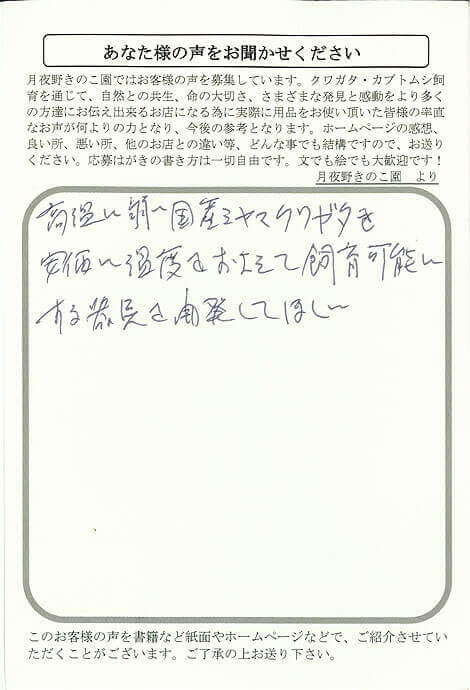 あなた様の声をお聞かせください
月夜野きのこ園ではお客様の声を募集しています。クワガタ・カブトムシ飼
育を通じて、自然との共生、命の大切さ、さまざまな発見と感動をより多く
の方達にお伝え出来るお店になる為に実際に用品をお使い頂いた皆様の率直
なお声が何よりの力となり、今後の参考となります。ホームページの感想、
良い所、悪い所、他のお店との違い等、どんな事でも結構ですので、お送り
ください。応募はがきの書き方は一切自由です。文でも絵でも大歓迎です！
月夜野きのこ園 より
高温に弱い国産ミヤマクワガタを
安価に温度をおさえて飼育可能に
する器具を開発してほしい
このお客様の声を書籍など紙面やホームページなどで、ご紹介させてい
ただくことがございます。ご了承の上お送り下さい。